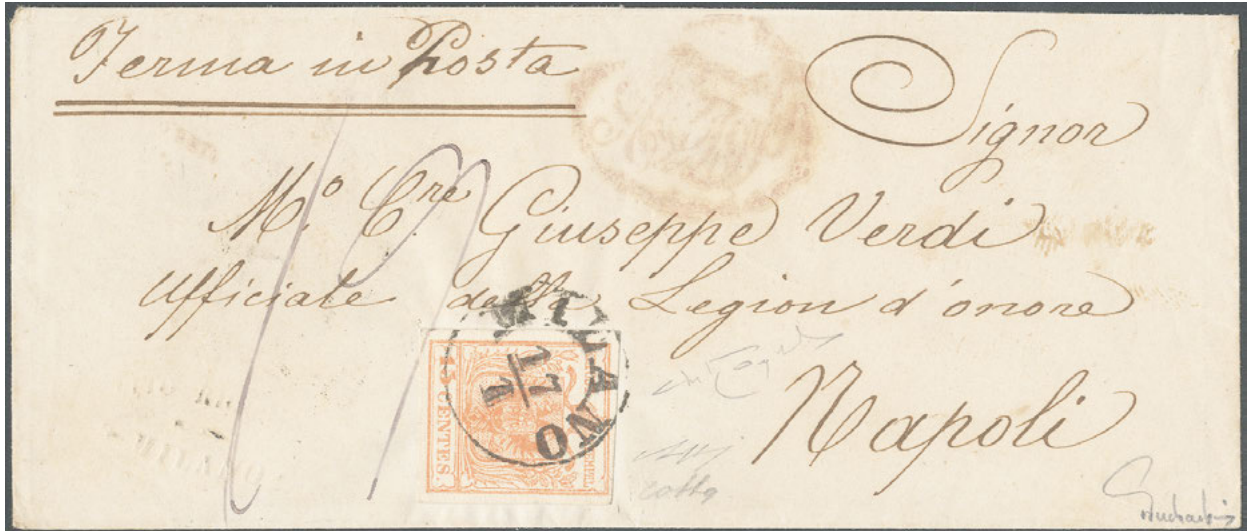 Ferma in Posta
Signor
M.º C.re Giuseppe Verdi
Ufficiale della Legion d'onore
Napoli
MILANO
17
1
15 CENTES.